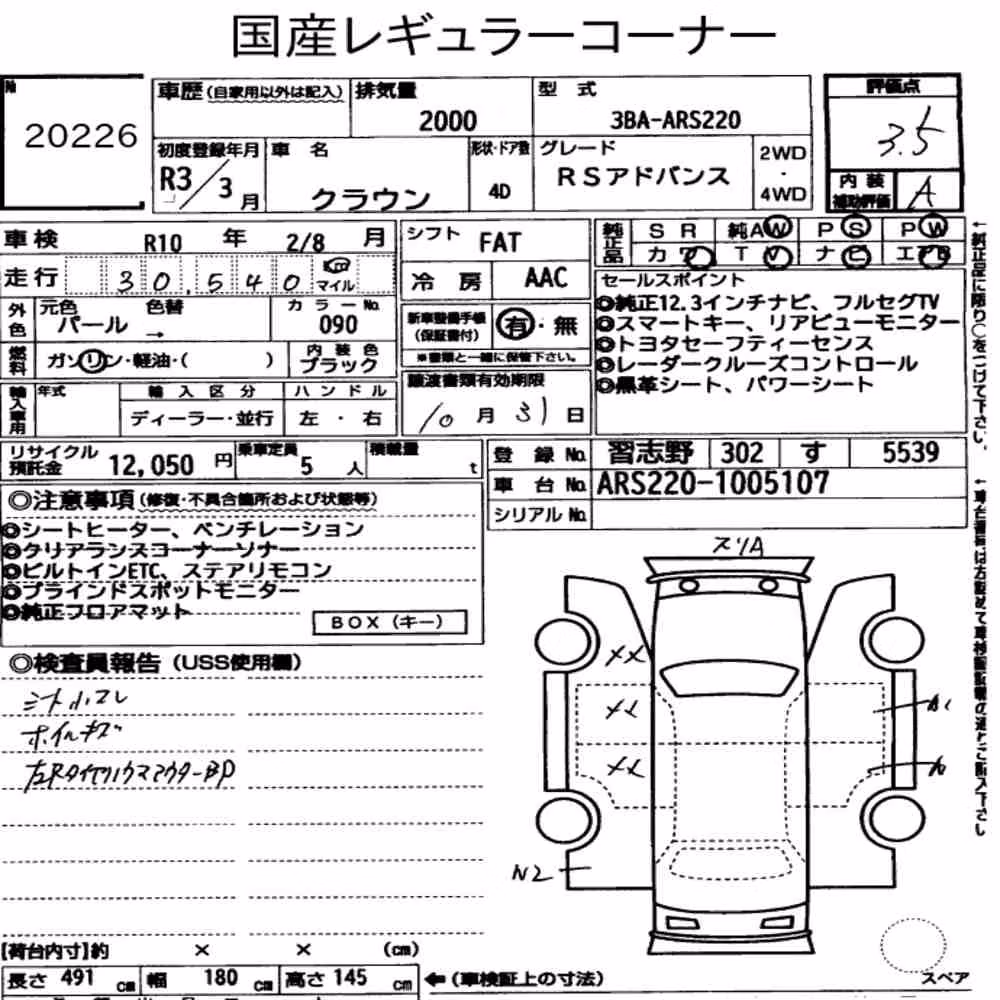 国産レギュラーコーナー
20226
車歴 (自家用以外は記入) 排気量 2000 型式 3BA-ARS220
評価点 3.5
内装補助評価 A
初度登録年月 R3/3月 車名 クラウン 形状・ドア数 4D グレード RSアドバンス 2WD・4WD
車検 R10年 2/8月 シフト FAT
純正品 SR 純AW PS PW
カワ TV ナビ エアB
走行 30,540 マイル 冷房 AAC
外色 元色 パール 色替 → カラーNo. 090
新車整備手帳(保証書付) 有・無
※書類と一緒に保管下さい。
燃料 ガソリン・軽油・( ) 内装色 ブラック
セールスポイント
◎純正12.3インチナビ、フルセグTV
◎スマートキー、リアビューモニター
◎トヨタセーフティーセンス
◎レーダークルーズコントロール
◎黒革シート、パワーシート
輸入車用 年式 輸入区分 ディーラー・並行 ハンドル 左・右
譲渡書類有効期限 10月31日
リサイクル預託金 12,050円 乗車定員 5人 積載量 t
登録No. 習志野 302 す 5539
車台No. ARS220-1005107
シリアルNo.
◎注意事項(修復・不具合箇所および状態等)
◎シートヒーター、ベンチレーション
◎クリアランスコーナーソナー
◎ビルトインETC、ステアリモコン
◎ブラインドスポットモニター
◎純正フロアマット
BOX(キー)
◎検査員報告(USS使用欄)
シート小スレ
ホイルキズ
スリA
XX
XX
XX
A1
N2
スペア
【荷台内寸】約 × × (cm)
長さ 491 cm 幅 180 cm 高さ 145 cm ←(車検証上の寸法)
←純正品に限り○をつけて下さい。